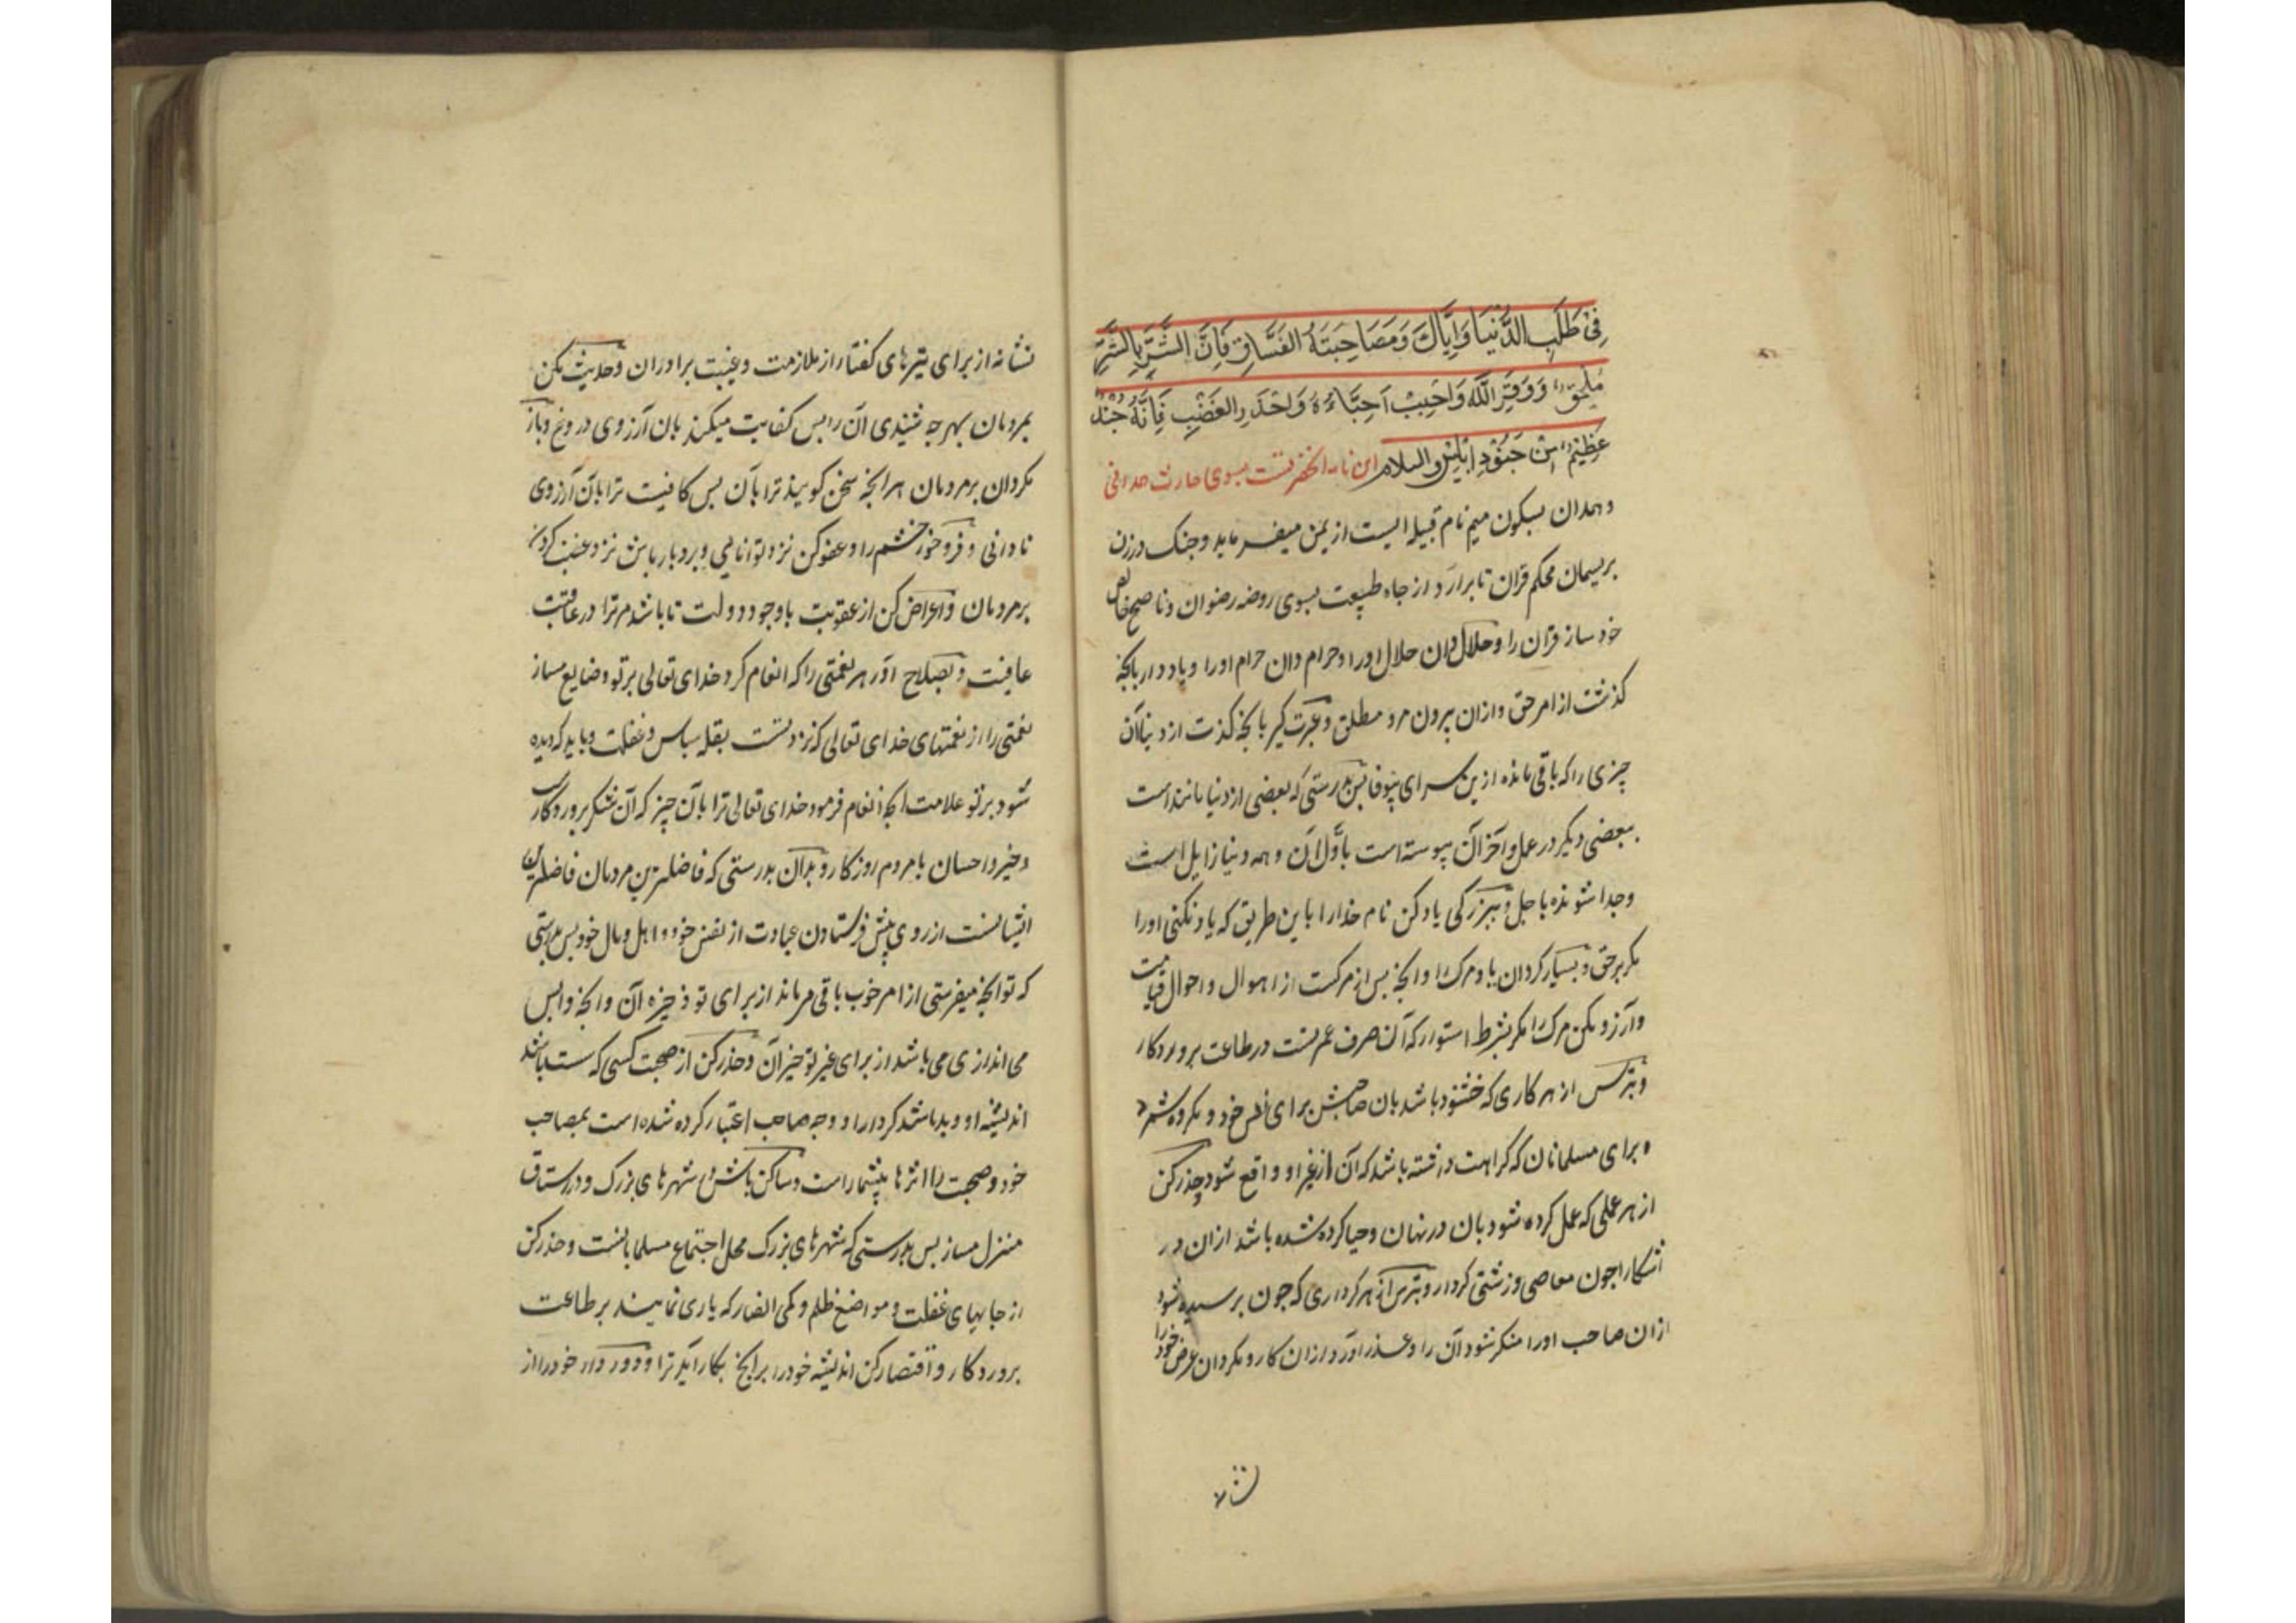 فِی طَلَبِ الدُّنْیَا وَاِیَّاكَ وَمَصَاحِبَتَهُ الفَسَّاقِ فَاِنَّ الشَّرَّ بِالشَّرِّ
مُلْحَق وَوَقِّرِ اللّٰهَ وَاَحْبِبْ اَحِبَّاءَهُ وَلحْذَرِ الغَضَبَ فَاِنَّهُ جُنْدٌ
عَظِیْمٌ مِنْ جُنُوْدِ اِبْلِیْسَ والسلام این نامه انحضرتست بسوی حارث همدانی
و همدان بسکون میم نام قبیله ایست از یمن میفرماید و چنک در زن
بریسمان محکم قران تا برارد از چاه طبیعت بسوی روضه رضوان و ناصح خالص
خود ساز قران را و حلال دان حلال اورا و حرام دان حرام اورا و باد دار بانچه
کذشت از امر حق و ازان بیرون مرو مطلق و عبرت کیر بانچه کذشت از دنیا آن
چیزی را که باقی مانده ازین سرای بیوفا پس بدرستی که بعضی از دنیا مانند است
ببعضی دیکر در عمل و آخر آن پیوسته است باوّل آن و همه دنیا زایل است
و جدا شونده باجل و ببزرکی یاد کن نام خدارا باین طریق که یاد نکنی اورا
مکر بر حق و بسیار کردان یاد مرک را و انچه پس از مرکست از اهوال و احوال قیامت
و آرزو مکن مرک را مکر بشرط استوار که آن صرف عمرتست در طاعت پروردکار
و بترس از هر کاری که خشنود باشد بان صاحبش برای نفس خود و مکروه شمرد
برای مسلمانان که کراهت داشته باشد که آن از غیر او واقع شود و حذر کن
از هر عملی که عمل کرده شود بان در نهان و حیا کرده شده باشد ازان در
آشکارا چون معاصی و زشتی کردار و بترس از هر کرداری که چون پرسیده شود
ازان صاحب اورا منکر شود آن را و عذر آورد ازان کار و مکردان عرض خود را
نشانه
نشانه از برای تیرهای کفتار از ملازمت و غیبت برادران و حدیث مکن
بمردمان بهرچه شنیدی آن را پس کفایت میکند بان آرزوی دروغ و باز
مکردان بر مردمان هر انچه سخن کویند ترا بآن پس کافیست ترا بان آرزوی
نادانی و فرو خور خشم را و عفو کن نزد توانایی و بردبار باش نزد غضب کردن
بر مردمان و اعراض کن از عقوبت باوجود دولت تا باشد مر ترا در عاقبت
عافیت و بصلاح آور هر نعمتی را که انعام کرد خدای تعالی بر تو و ضایع مساز
نعمتی را از نعمتهای خدای تعالی که نزد تست بقله سپاس و غفلت و باید که دیده
شود بر تو علامت انچه انعام فرمود خدای تعالی ترا بآن چیز که آن شکر پروردکار
و خیر و احسان با مردم روزکار و بدان بدرستی که فاضلترین مردمان فاضلترین
ایشانست از روی پیش فرستادن عبادت از نفس خود و اهل و مال خود پس بدرستی
که تو انچه میفرستی از امر خوب باقی می ماند از برای تو ذخیره آن و انچه واپس
می اندازی می باشد از برای غیر تو خیر آن و حذر کن از صحبت کسی که سست باشد
اندیشه او و بد باشد کردار او و چه صاحب اعتبار کرده شده است بمصاحب
خود و صحبت را اثرها بیشمار است و ساکن باش در شهرهای بزرک و در رستاق
منزل مساز پس بدرستی که شهرهای بزرک محل اجتماع مسلمانانست و حذر کن
از جایهای غفلت و مواضع ظلم و کمی انصار که یاری نمایند بر طاعت
پروردکار و اقتصار کن اندیشه خود را بر انچه بکار آید ترا و دور دار خود را از